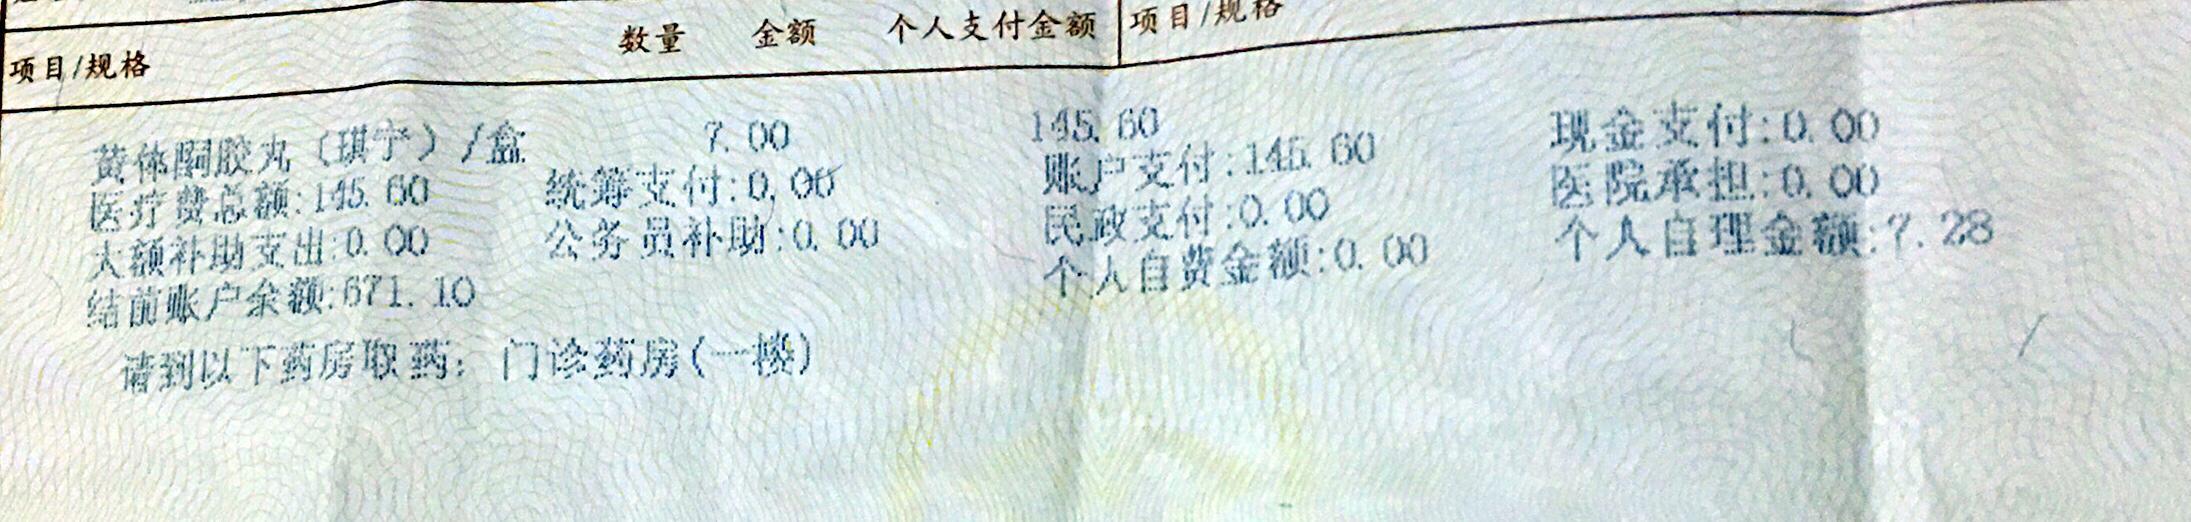 项目/规格 数量 金额 个人支付金额 项目/规格
黄体酮胶丸（琪宁）/盒 7.00 145.60
医疗费总额:145.60 统筹支付:0.00 账户支付:145.60 现金支付:0.00
大额补助支出:0.00 公务员补助:0.00 民政支付:0.00 医院承担:0.00
结前账户余额:671.10 个人自费金额:0.00 个人自理金额:7.28
请到以下药房取药：门诊药房(一楼)